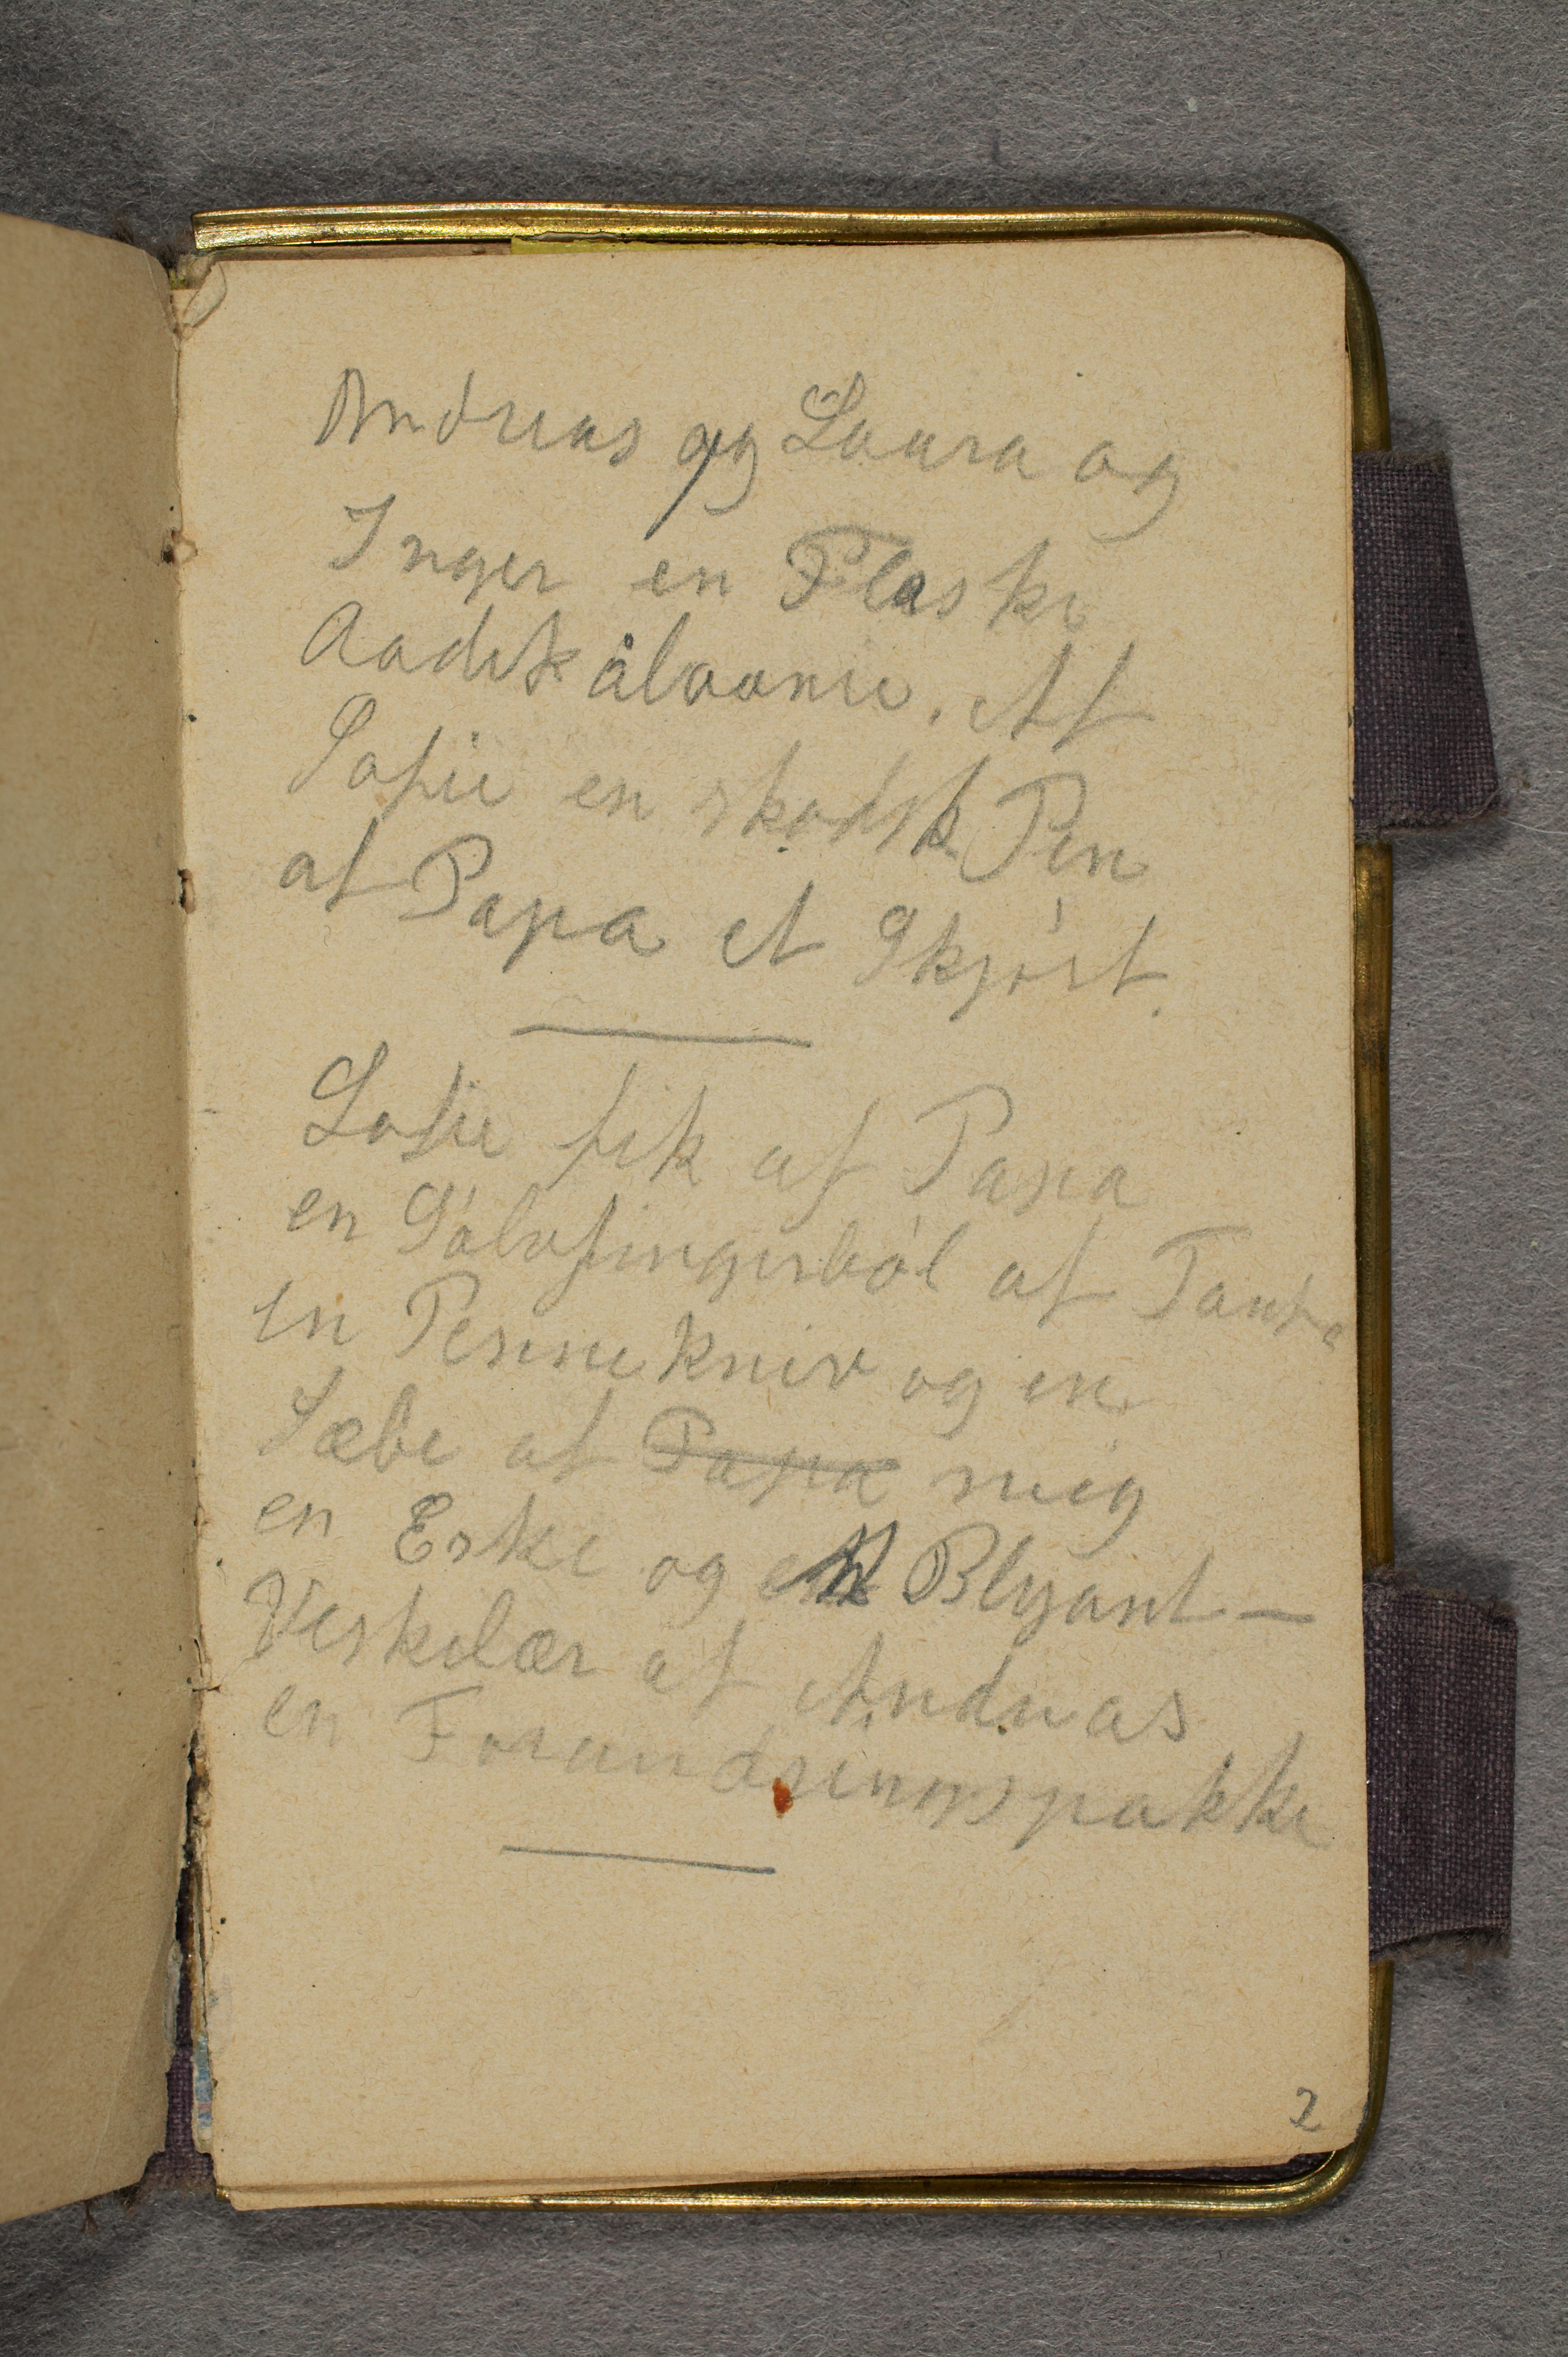 Andreas og Laura og
Inger en Flaske
Aadekåloanie. Af
Sofie en skodsk Pen
af Papa et Skjört.
Sofie fik af Papa
en Sölvfingerböl af Tante
en Pennekniv og en
Sæbe af Papa mig
en Eske og en Blyant-
Viskelær af Andreas
en Forandringspakke
2